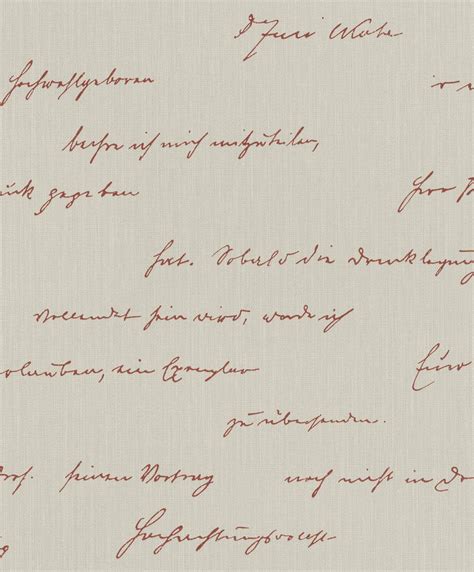 Hochwohlgeboren
beehre ich mich mitzuteilen,
ück gegeben Herr
hat. Sobald die Drucklegung
vollendet sein wird, werde ich
rlauben, ein Exemplar Euer
zu übersenden.
rof. seinen Vortrag noch nicht in
Hochachtungsvollst